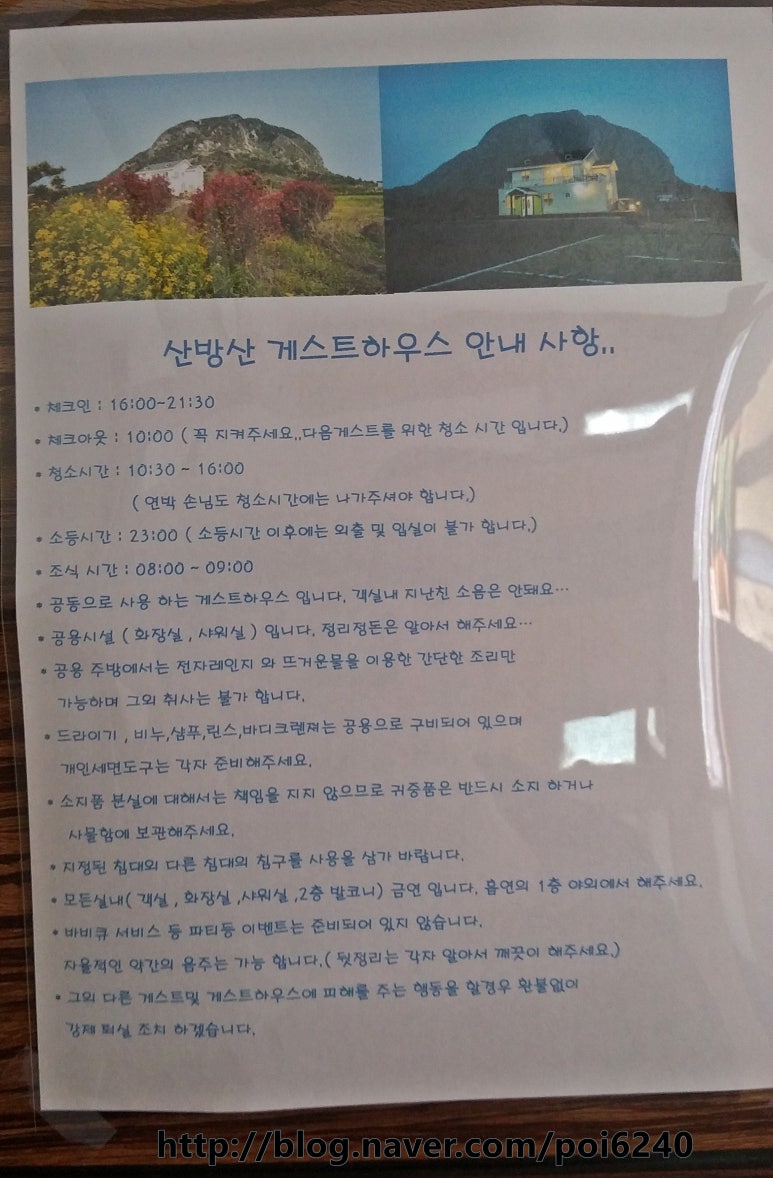 산방산 게스트하우스 안내 사항..
• 체크인 : 16:00~21:30
• 체크아웃 : 10:00 ( 꼭 지켜주세요..다음게스트를 위한 청소 시간 입니다.)
• 청소시간 : 10:30 ~ 16:00
( 연박 손님도 청소시간에는 나가주셔야 합니다.)
• 소등시간 : 23:00 ( 소등시간 이후에는 외출 및 입실이 불가 합니다.)
• 조식 시간 : 08:00 ~ 09:00
• 공동으로 사용 하는 게스트하우스 입니다. 객실내 지난친 소음은 안돼요…
• 공용시설 ( 화장실 , 샤워실 ) 입니다. 정리정돈은 알아서 해주세요…
• 공용 주방에서는 전자레인지 와 뜨거운물을 이용한 간단한 조리만
가능하며 그외 취사는 불가 합니다.
• 드라이기 , 비누,샴푸,린스,바디크렌져는 공용으로 구비되어 있으며
개인세면도구는 각자 준비해주세요.
• 소지품 분실에 대해서는 책임을 지지 않으므로 귀중품은 반드시 소지 하거나
사물함에 보관해주세요.
• 지정된 침대외 다른 침대의 침구를 사용을 삼가 바랍니다.
• 모든실내( 객실 , 화장실 ,샤워실 ,2층 발코니) 금연 입니다. 흡연의 1층 야외에서 해주세요.
• 바비큐 서비스 등 파티등 이벤트는 준비되어 있지 않습니다.
자율적인 약간의 음주는 가능 합니다.( 뒷정리는 각자 알아서 깨끗이 해주세요.)
• 그외 다른 게스트및 게스트하우스에 피해를 주는 행동을 할경우 환불없이
강제 퇴실 조치 하겠습니다.
http://blog.naver.com/poi6240